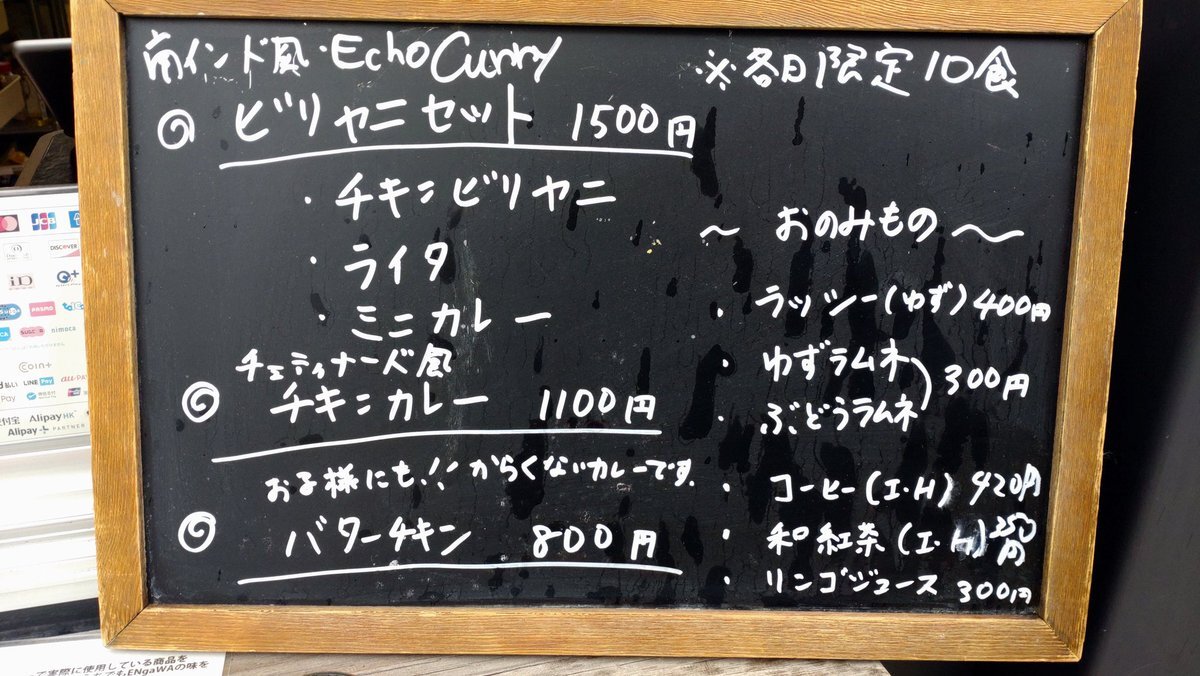 南インド風・Echo Curry
※各日限定10食
◎ ビリヤニセット 1500円
・チキンビリヤニ
・ライタ
・ミニカレー
チェティナード風
◎ チキンカレー 1100円
お子様にも!! からくないカレーです.
◎ バターチキン 800円
〜 おのみもの 〜
・ラッシー(ゆず) 400円
・ゆずラムネ
・ぶどうラムネ
300円
・コーヒー(I・H) 420円
・和紅茶(I・H) 350円
・リンゴジュース 300円
JCB
DISCOVER
iD
PASMO
SUGOCA
nimoca
COIN+
LINE Pay
au PAY
Pay
Alipay HK
Alipay+ PARTNER
て実際に使用している商品を
でもENgaWAの味を